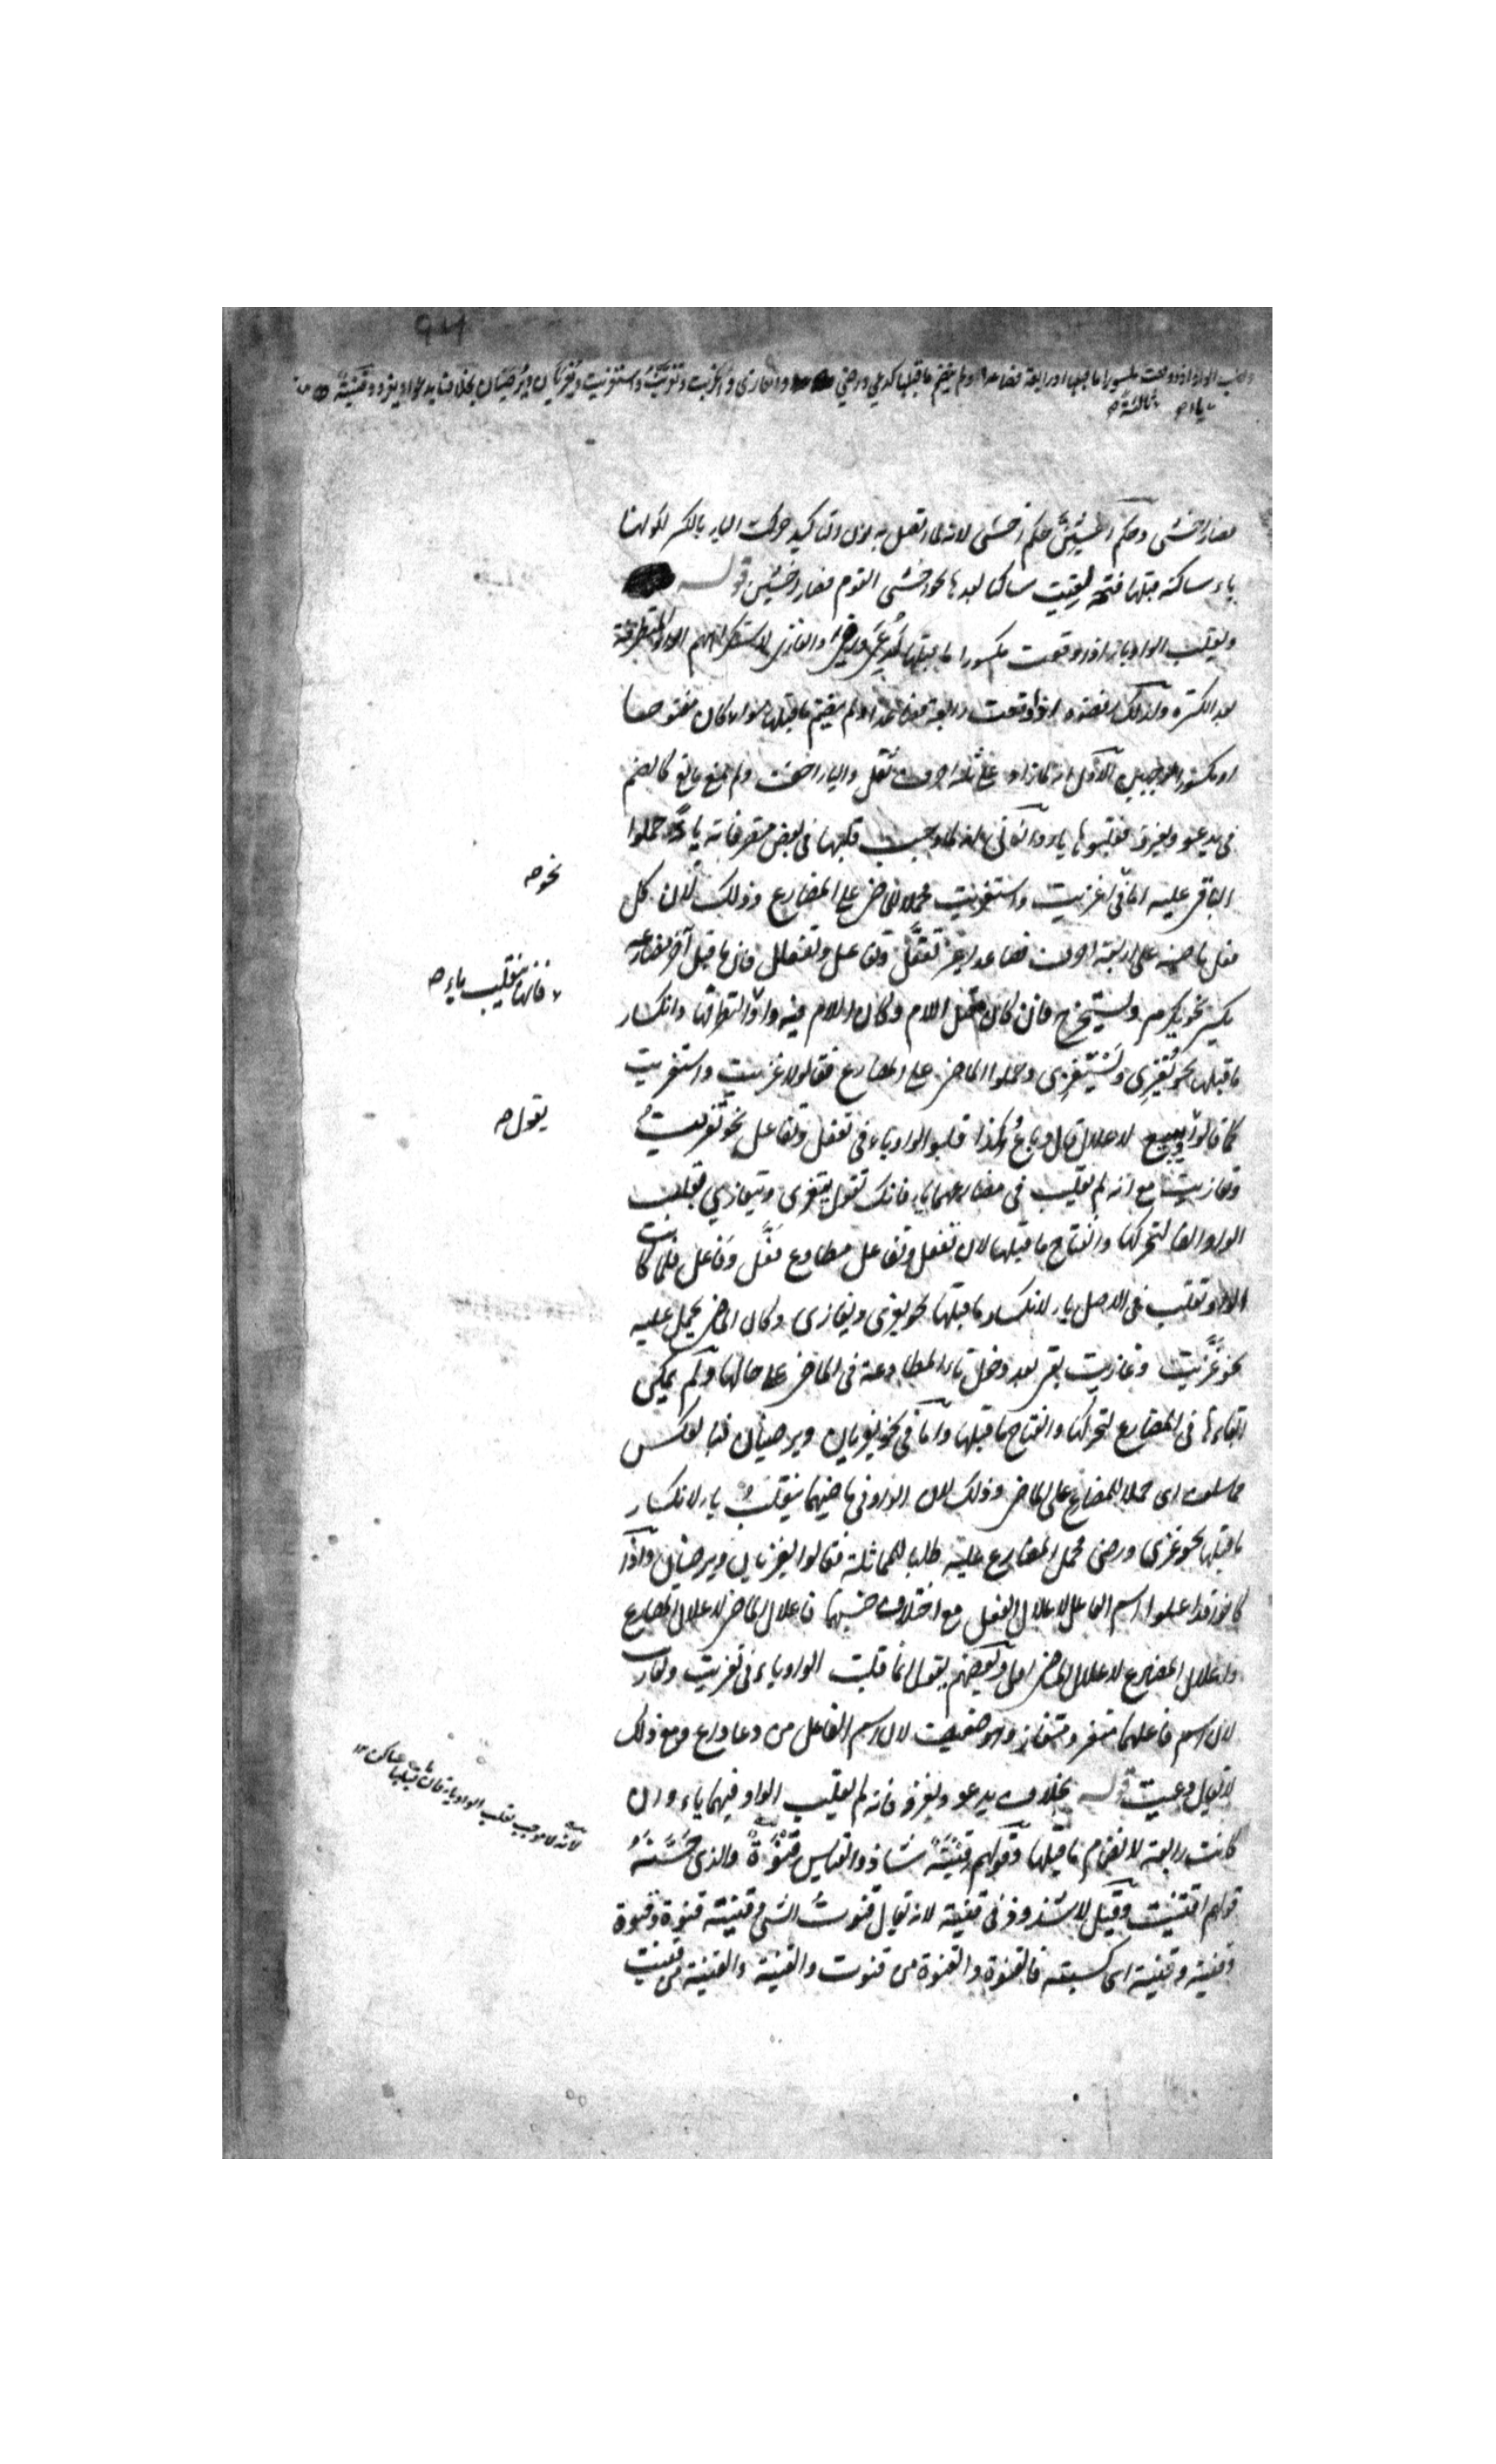 وتقلب الواو اذا وقعت مكسورا ما قبلها او رابعة فصاعدا ولم ينضم ما قبلها كدعي ورضي والغازي واغزيت وتغزيت واستغزيت ويغزيان ويرضيان بخلاف يدعو ويغزو وقنية
ياء ص ثالثة ص
فصار اخشى وحكم اخشين حكم اخشى لانه لما اتصل به نون التاكيد حركت الياء بالكسر لكونها
ياء ساكنة قبلها فتحة لقيت ساكنا بعدها نحو اخشى القوم فصار اخشين قوله
وتقلب الواو ياء اذا وقعت مكسورا ما قبلها كدعي ورضي والغازي لاستكراههم الواو المتطرفة
بعد الكسرة وكذلك اذا وقعت رابعة فصاعدا ولم ينضم ما قبلها سواء كان مفتوحا
او مكسورا لوجهين الاول انه لما زاد على ثلثة احرف ثقل والياء اخف ولم يمنع مانع كالضم
في يدعو ويغزو فقلبوها ياء والثاني انه لما وجب قلبها في بعض متصرفاته ياء حملوا
الباقي عليه اما في اغزيت واستغزيت فحملا للماضي على المضارع وذلك لان كل
فعل ماضيه على اربعة احرف فصاعدا غير تفعّل وتفاعل وتفعلل فان ما قبل آخر مضارعه
يكسر نحو يكرم ويستخرج فان كان معتل اللام وكان اللام فيه واوا لتطرفها وانكسار
ما قبلها نحو يغزى ويستغزى وحملوا الماضي على المضارع فقالوا اغزيت واستغزيت
كما قالوا يبيع لاعلال قال وباع وكذا قلبوا الواو ياء في تفعل وتفاعل نحو تغزيت
وتغازيت مع انه لم تقلب في مضارعهما ياء فانك تقول يتغزى ويتغازى بقلب
الواو الفا لتحركها وانفتاح ما قبلها لان تفعل وتفاعل مطاوع فعّل وفاعل فلما كانت
الواو تقلب في الاصل ياء لانكسار ما قبلها نحو يغزى ويغازى وكان الماضي يحمل عليه
نحو غزّيت وغازيت بقى بعد دخل تاء المطاوعة في الماضي على حالها ولم يمكن
ابقاءها في المضارع لتحركها وانفتاح ما قبلها واما في نحو يغزيان ويرضيان فبالعكس
مما سلف اى حملا للمضارع على الماضي وذلك لان الواو في ماضيهما ينقلب ياء لانكسار
ما قبلها نحو غزى ورضى فحمل المضارع عليه طلبا للمماثلة فقالوا يغزيان ويرضيان واذا
كانوا قد اعلوا اسم الفاعل لاعلال الفعل مع اختلاف جنسهما فاعلال الماضي لاعلال المضارع
واعلال المضارع لاعلال الماضي اولى وبعضهم يقول انما قلبت الواو ياء في تغزيت وتغازيت
لان اسم فاعلهما متغز ومتغاز وهو ضعيف لان اسم الفاعل من دعا داع ومع ذلك
لا تقول دعيت قوله بخلاف يدعو ويغزو فانه لم تقلب الواو فيهما ياء وان
كانت رابعة لانضمام ما قبلها وقولهم قنية شاذ والقياس قنوة والذي حسنه
قولهم اقتنيت وقيل لا شذوذ في قنية لانه تقول قنوت الشيء وقنيته قنوة وقنوة
وقنية وقنية اى كسبته فالقنوة والقنوة من قنوت والقنية والقنية من قنيت
نحو ص
فانها تنقلب ياء ص
يقول ص
لانه لا موجب لقلب الواو ياء فان ما قبلها ساكن